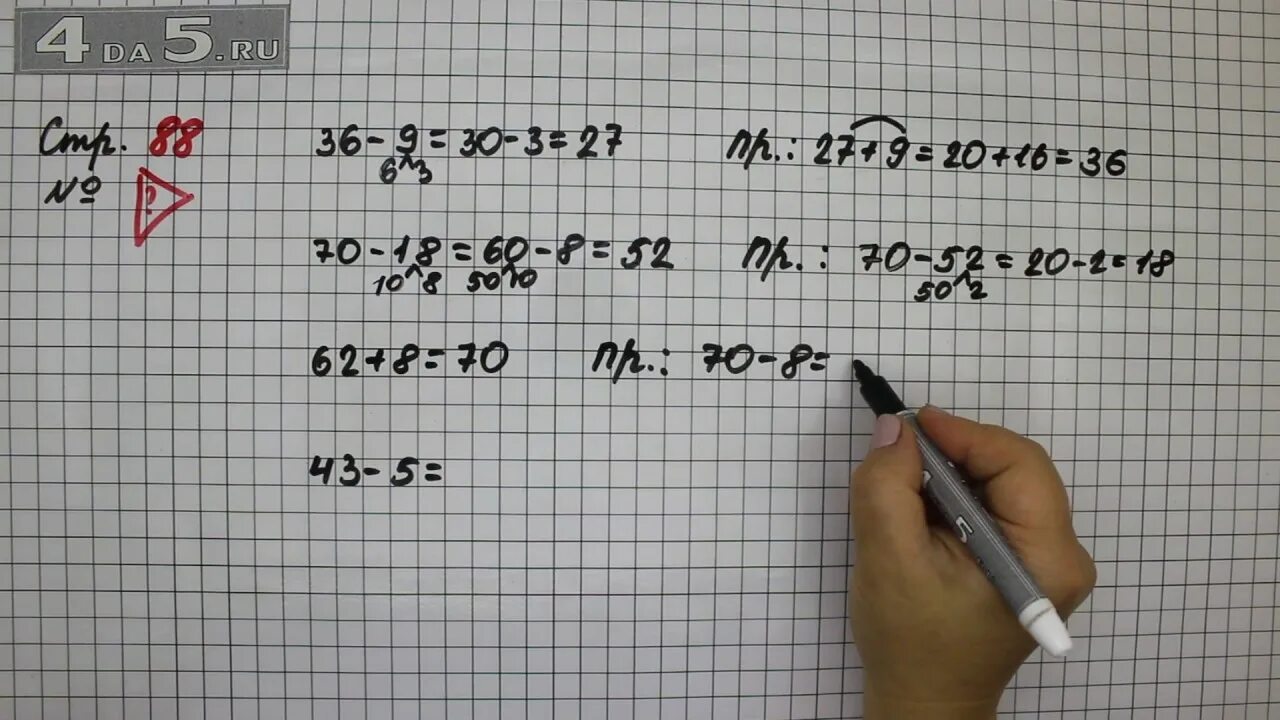 4 DA 5.RU
Стр. 88
№ ?
36 - 9 = 30 - 3 = 27 пр.: 27 + 9 = 20 + 16 = 36
6 3
70 - 18 = 60 - 8 = 52 пр.: 70 - 52 = 20 - 2 = 18
10 8 50 10 50 2
62 + 8 = 70 пр.: 70 - 8 =
43 - 5 =
5